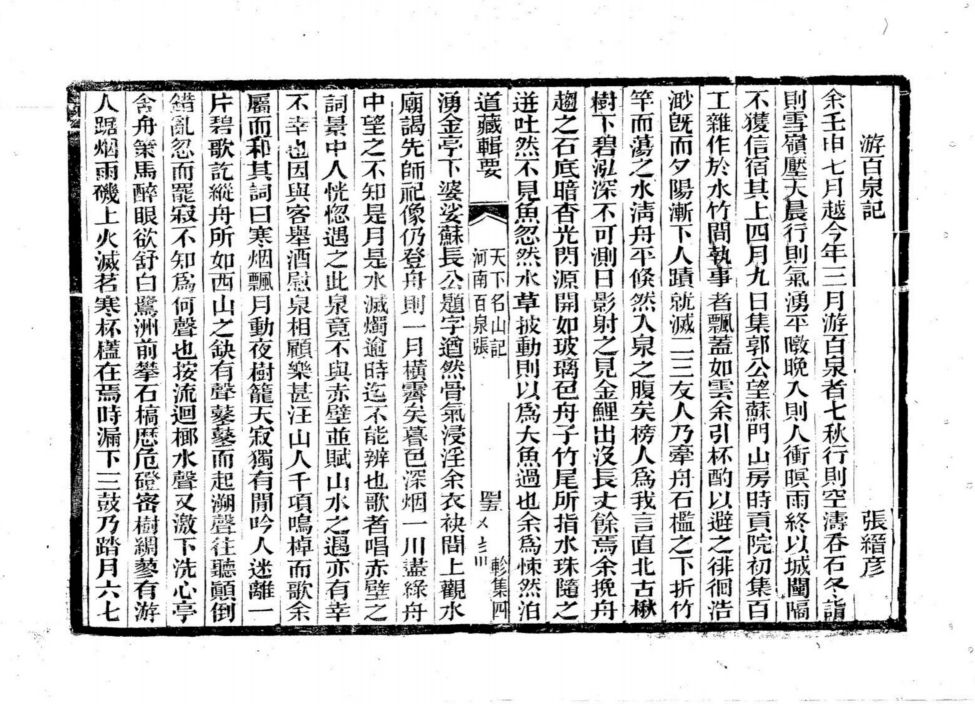 游百泉記
張縉彦
余壬申七月越今年三月游百泉者七秋行則空濤吞石冬詣
則雪嶺壓天晨行則氣湧平暾晚入則人衝暝雨終以城闉隔
不獲信宿其上四月九日集郭公望蘇門山房時貢院初集百
工雜作於水竹間執事者飄蓋如雲余引杯酌以遊之徘徊浩
渺旣而夕陽漸下人蹟就滅二三友人乃牽舟石檻之下折竹
竿而蕩之水淸舟平倏然入泉之腹矣榜人爲我言直北古楸
樹下碧泓深不可測日影射之見金鯉出沒長丈餘焉余挽舟
趨之石底暗杳光閃源開如玻璃色舟子竹尾所指水珠隨之
迸吐然不見魚忽然水草披動則以爲大魚過也余爲悚然泊
道藏輯要
天下名山記
河南百泉張
軫集四
湧金亭下婆娑蘇長公題字遒然骨氣浸淫余衣袂間上觀水
廟謁先師祀像仍登舟則一月橫霽矣暮色深烟一川盡綠舟
中望之不知是月是水滅燭逾時迄不能辨也歌者唱赤壁之
詞景中人恍惚遇之此泉竟不與赤壁並賦山水之遇亦有幸
不幸也因與客舉酒慰泉相顧樂甚汪山人千頃鳴棹而歌余
屬而和其詞曰寒烟飄月動夜樹籠天寂獨有閒吟人迷離一
片碧歌訖縱舟所如西山之缺有聲鼕鼕而起溯聲往聽顚倒
錯亂忽而罷寂不知爲何聲也按流迴櫂水聲又激下洗心亭
舍舟策馬醉眼欲舒白鷺洲前攀石槁歷危磴密樹綢蓼有游
人踞烟雨磯上火滅茗寒杯榼在焉時漏下三鼓乃踏月六七